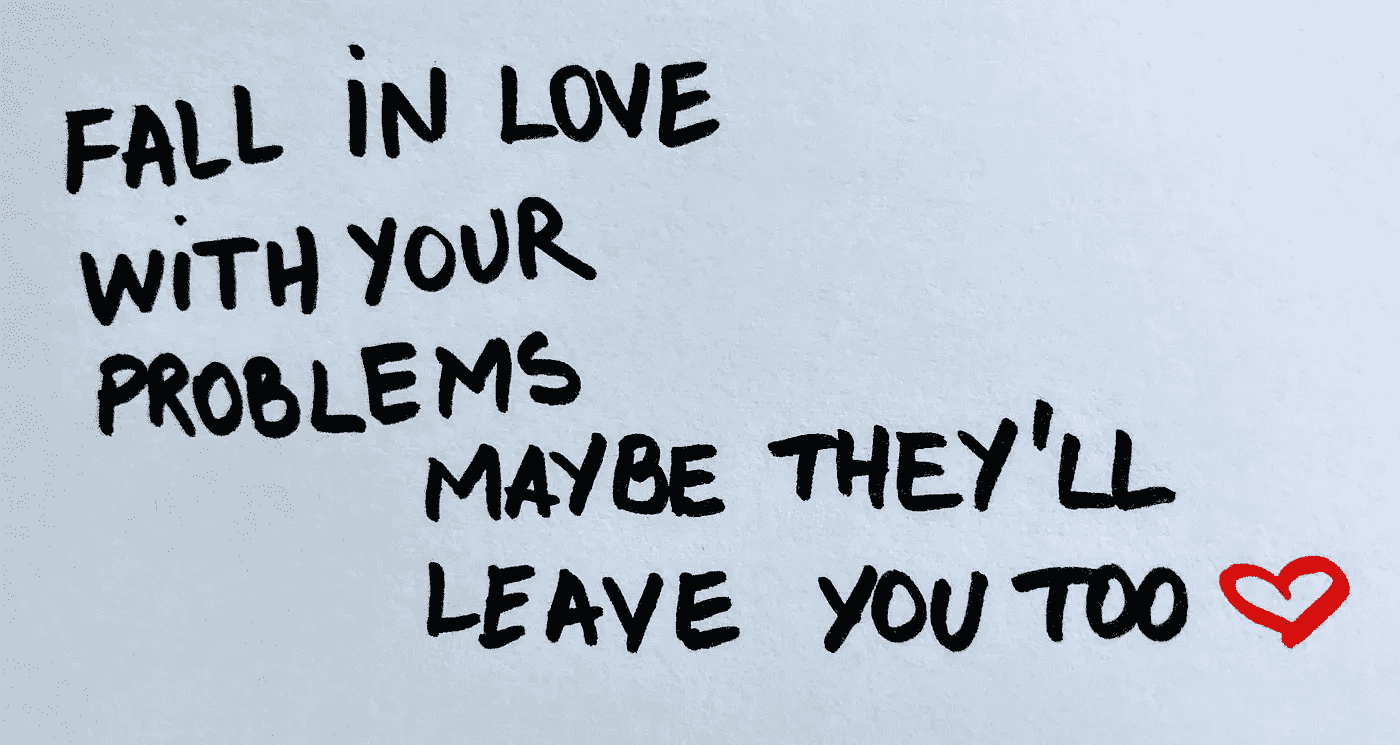 FALL IN LOVE
WITH YOUR
PROBLEMS
MAYBE THEY'LL
LEAVE YOU TOO